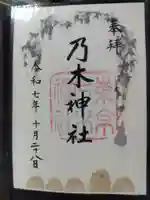 奉拝
乃木神社
令和七年十月二十八日